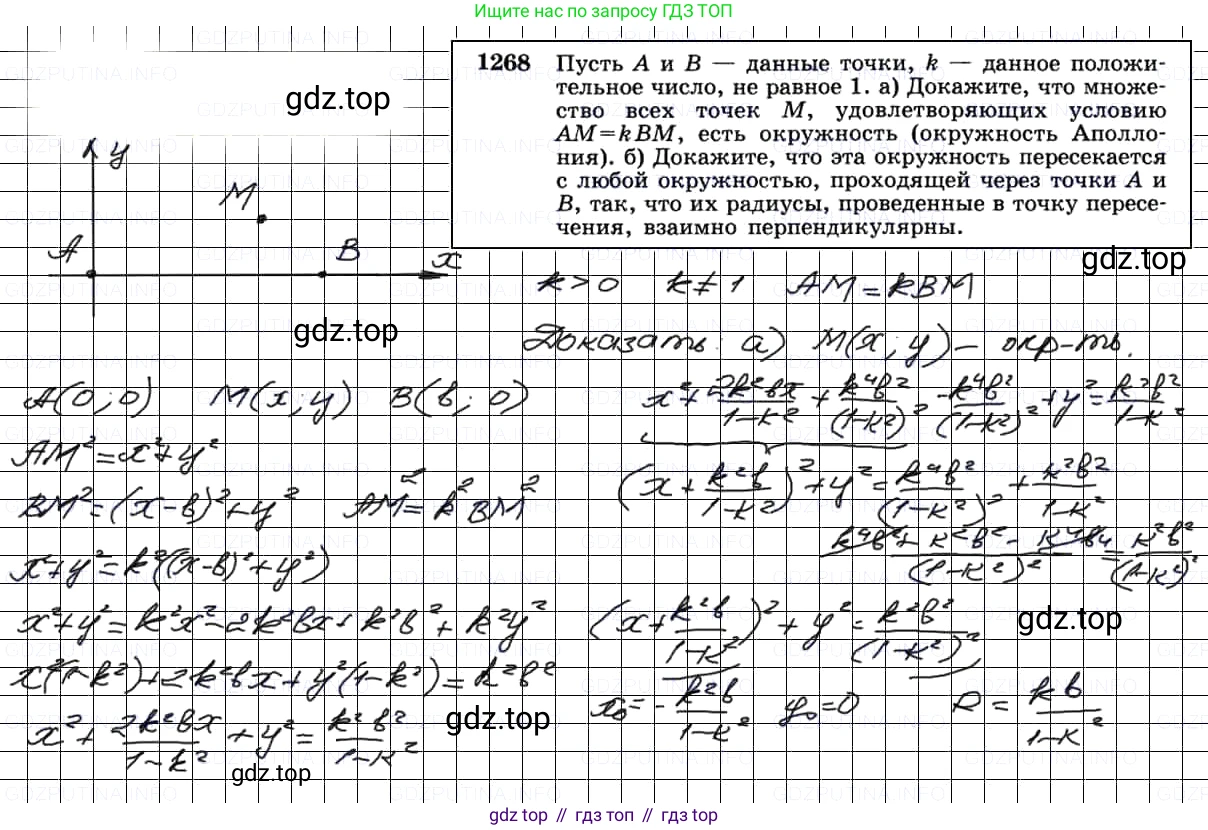 Ищите нас по запросу ГДЗ ТОП
1268 Пусть A и B — данные точки, k — данное положи-
тельное число, не равное 1. а) Докажите, что множе-
ство всех точек M, удовлетворяющих условию
AM=kBM, есть окружность (окружность Аполло-
ния). б) Докажите, что эта окружность пересекается
с любой окружностью, проходящей через точки A и
B, так, что их радиусы, проведенные в точку пересе-
чения, взаимно перпендикулярны.
gdz.top
y
M
A
B
x
gdz.top
k > 0 k ≠ 1 AM = kBM
gdz.top
Доказать: а) M(x; y) – окр-ть.
A(0; 0) M(x; y) B(b; 0)
AM² = x² + y²
BM² = (x-b)² + y² AM² = k² BM²
x² + y² = k²((x-b)² + y²)
x² + y² = k²x² - 2k²bx + k²b² + k²y²
x²(1-k²) + 2k²bx + y²(1-k²) = k²b²
x² + 2k²bx/(1-k²) + y² = k²b²/(1-k²)
gdz.top
x² + 2k²bx/(1-k²) + k⁴b²/(1-k²)² - k⁴b²/(1-k²)² + y² = k²b²/(1-k²)
(x + k²b/(1-k²))² + y² = k⁴b²/(1-k²)² + k²b²/(1-k²)
(x + k²b/(1-k²))² + y² = k²b²/(1-k²)²
gdz.top
x₀ = - k²b/(1-k²) y₀ = 0 R = kb/(1-k²)
gdz.top
gdz.top // гдз топ // gdz top
GDZPUTINA.INFO